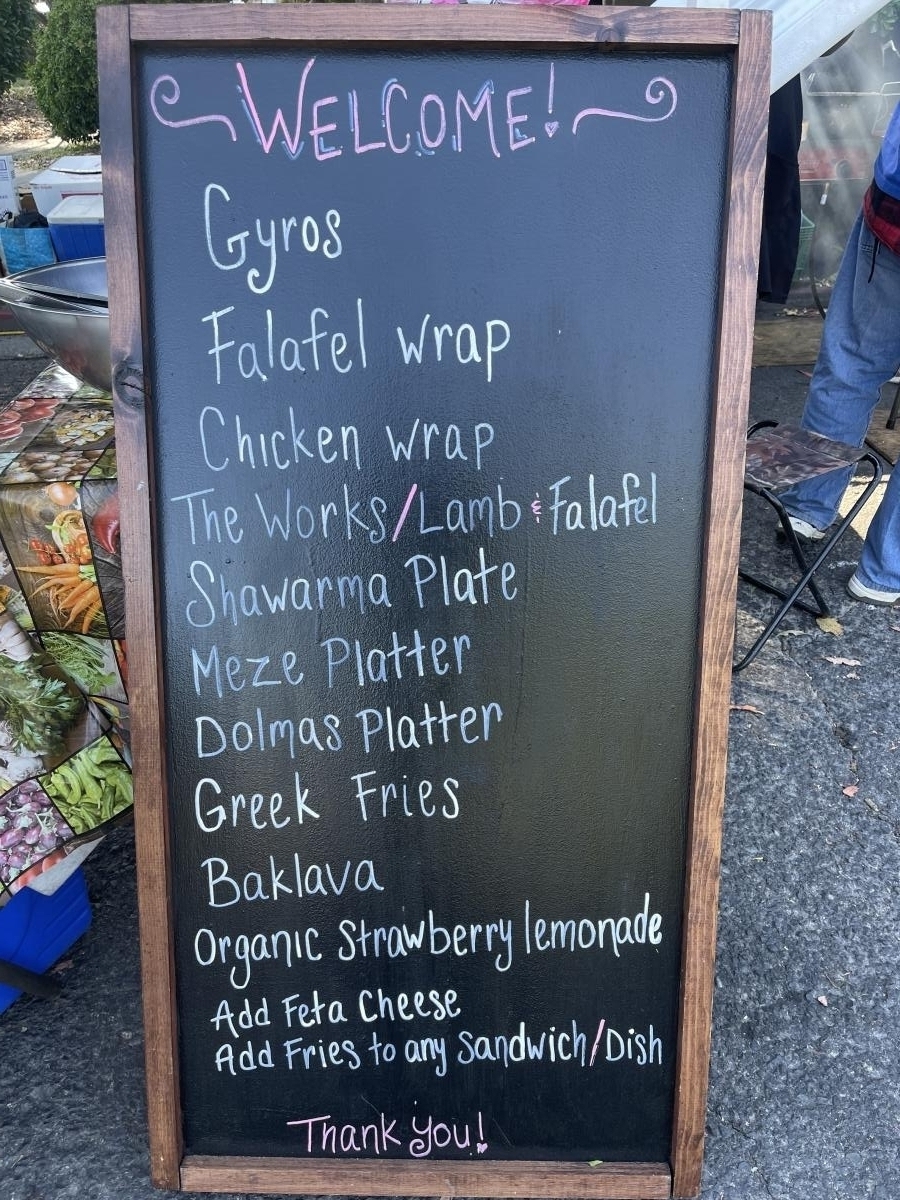 WELCOME!
Gyros
Falafel wrap
Chicken wrap
The Works/Lamb & Falafel
Shawarma Plate
Meze Platter
Dolmas Platter
Greek Fries
Baklava
Organic Strawberry lemonade
Add Feta Cheese
Add Fries to any Sandwich/Dish
Thank you!